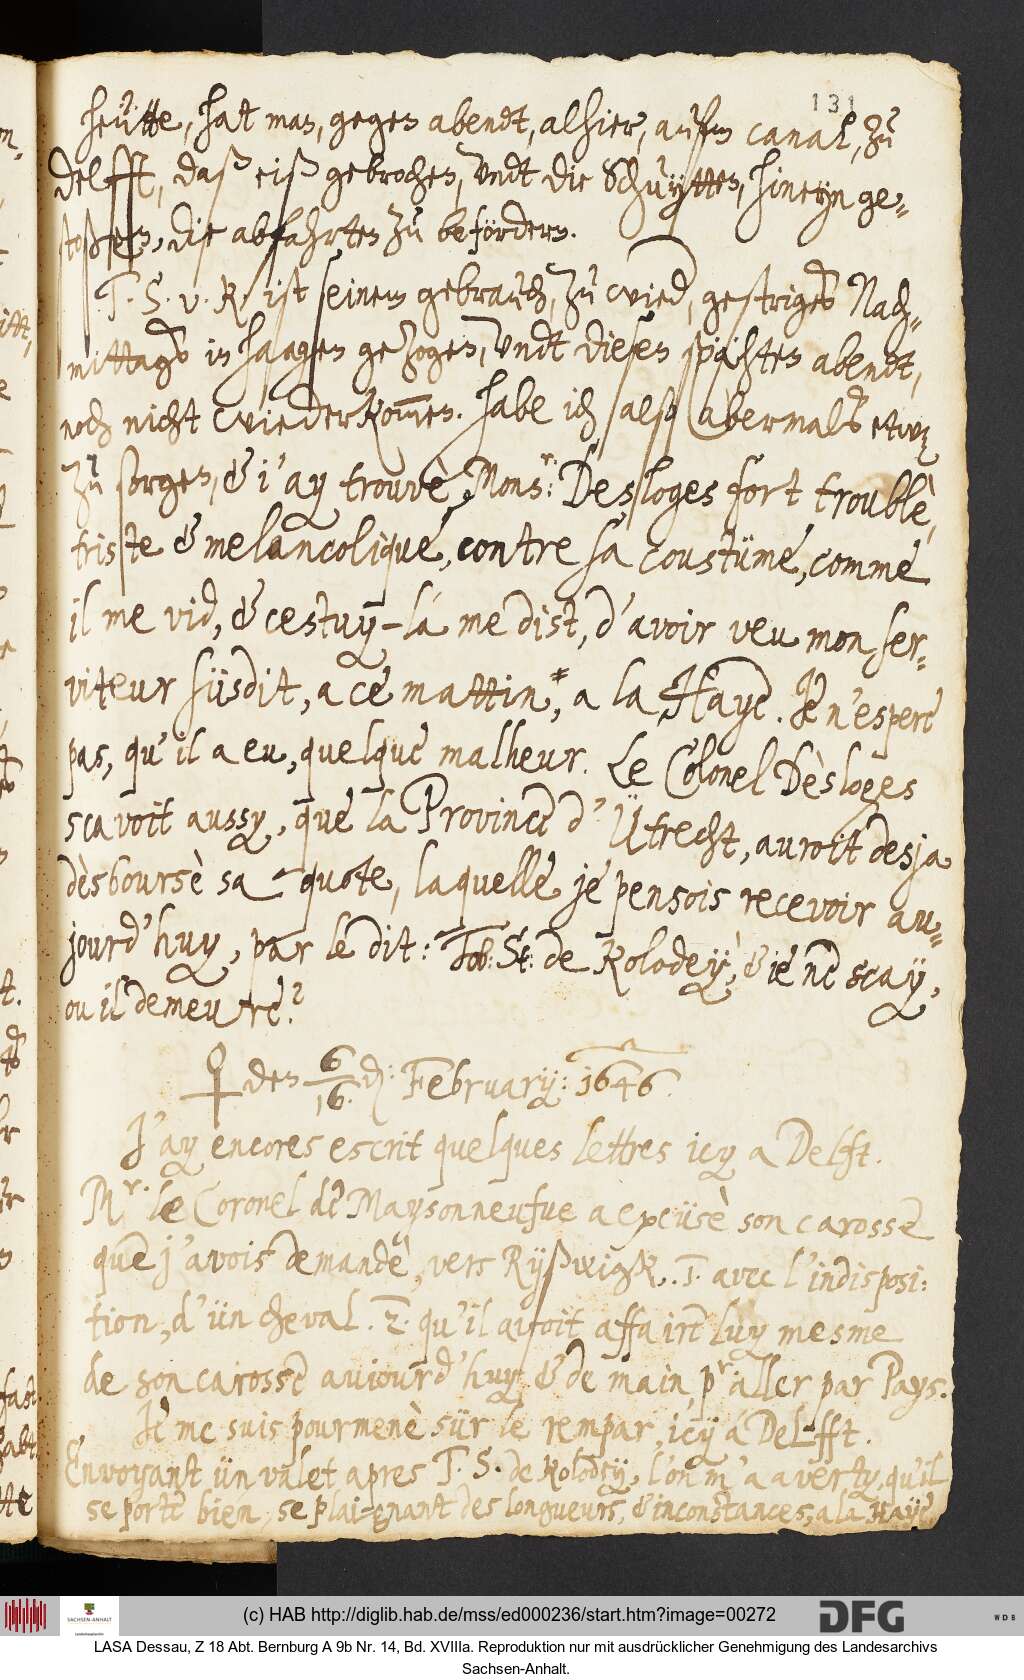 131
heütte, hat man, gegen abendt, alhier, aufm canal, zu
Delfft, daß eiß gebrochen, undt die Schuytten, hineyn ge-
stoßen, die abfahrten zu befördern.
T. S. v. K. ist seinem gebrauch, zu wied, gestriges Nach-
mittags in haagen gezogen, undt diesen spähten abendt,
noch nicht wiederkommen. habe ich also abermals etwas
zu sorgen, & i'ay trouvè, Mons.r: Desloges fort troublè,
triste & melancolique, contre sa coustüme, comme
il me vid, & cestuy-la me dist, d'avoir veu mon ser-
viteur süsdit, a ce mattin, a la Haye. Je n'espere
pas, qu'il a eu, quelque malheur. Le Colonel Dèsloges
scavoit aussy, que la Province d'Ütrecht, auroit desja
dèsboursè sa quote, laquelle je pensois recevoir au-
jourd'huy, par le dit: Tob: St: de Kolodey, & ie ne scay,
ou il demeure?
♀ den 6/16. d: February: 1646.
J'ay encores escrit quelques lettres icy a Delft.
Mr. le Coronel de Maysonneufue a excüsè son carosse
que j'avois demandè, vers Ryßwigk. 1. avec l'indisposi:
tion, d'ün cheval. 2. qu'il avoit affaire luy mesme
de son carosse aujourd'huy & demain pr aller par Pays.
Je me suis pourmenè sür le rempar, icy a Delfft.
Envoyant ün valet apres T. S. de Kolodey, l'on m'a averty, qu'il
se porte bien, se plaignant des longueurs, & inconstances, a la Haye
(c) HAB http://diglib.hab.de/mss/ed000236/start.htm?image=00272
SACHSEN-ANHALT
DFG
WDB
LASA Dessau, Z 18 Abt. Bernburg A 9b Nr. 14, Bd. XVIIIa. Reproduktion nur mit ausdrücklicher Genehmigung des Landesarchivs
Sachsen-Anhalt.